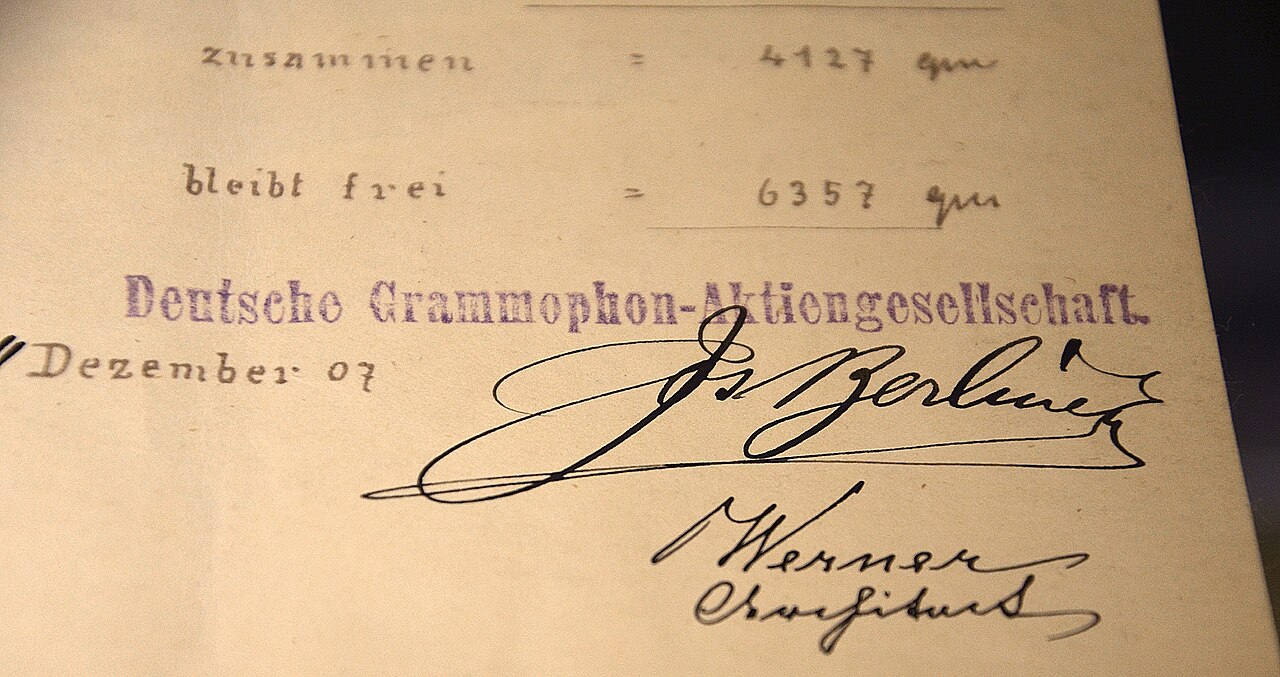 zusammen = 4127 qm
bleibt frei = 6357 qm
Deutsche Grammophon-Aktiengesellschaft.
" Dezember 07
Js Berliner
Werner
Architect